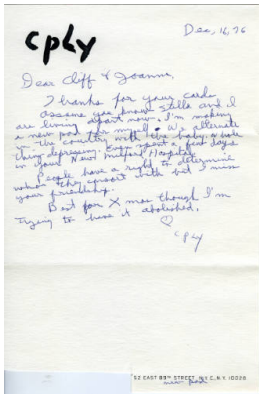 cply
Dec, 16, 76
Dear Cliff & Joanne,
Thanks for your card.
Assume you know Stella and I
are living apart now. I'm making
a new pad for myself. We alternate
in the country with the baby, a whole
thing depressing. Even spent a few days
in your New Milford Hospital.
People have a right to determine
whom they consort with but I miss
your friendship.
Best for X mas though I'm
trying to have it abolished.
♡
cply
52 EAST 89th STREET, N.Y.C., N.Y. 10028
new pad